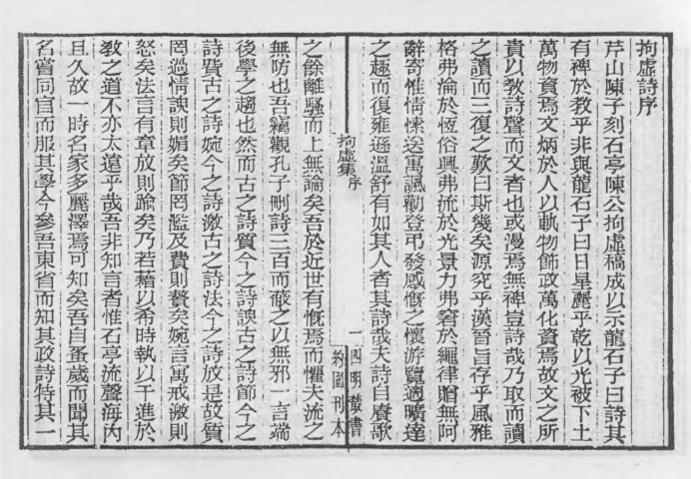 拘虛詩序
芹山陳子刻石亭陳公拘虛稿成以示龍石子曰詩其
有裨於教乎非與龍石子曰日星麗乎乾以光被下土
萬物資焉文炳於人以軌物飾政萬化資焉故文之所
貴以教詩聲而文者也或漫焉無裨豈詩哉乃取而讀
之讀而三復之歎曰斯幾矣源究乎漢晉旨存乎風雅
格弗淪於恆俗興弗流於光景力弗窘於繩律贈無阿
辭寄惟情愫送寓諷勸登弔發感慨之懷游覽適曠達
之趣而復雍遜溫舒有如其人者其詩哉夫詩自賡歌
拘虛集序
一
四明叢書
約園刊本
之餘離騷而上無論矣吾於近世有慨焉而懼夫流之
無防也吾竊觀孔子刪詩三百而蔽之以無邪一言端
後學之趨也然而古之詩質今之詩諛古之詩節今之
詩費古之詩婉今之詩激古之詩法今之詩放是故質
罔過情諛則媚矣節罔濫及費則贅矣婉言寓戒激則
怒矣法言有章放則踰矣乃若藉以希時執以干進於
教之道不亦太遠乎哉吾非知言者惟石亭流聲海內
且久故一時名家多麗澤焉可知矣吾自蚤歲而聞其
名嘗同官而服其學今參吾東省而知其政詩特其一